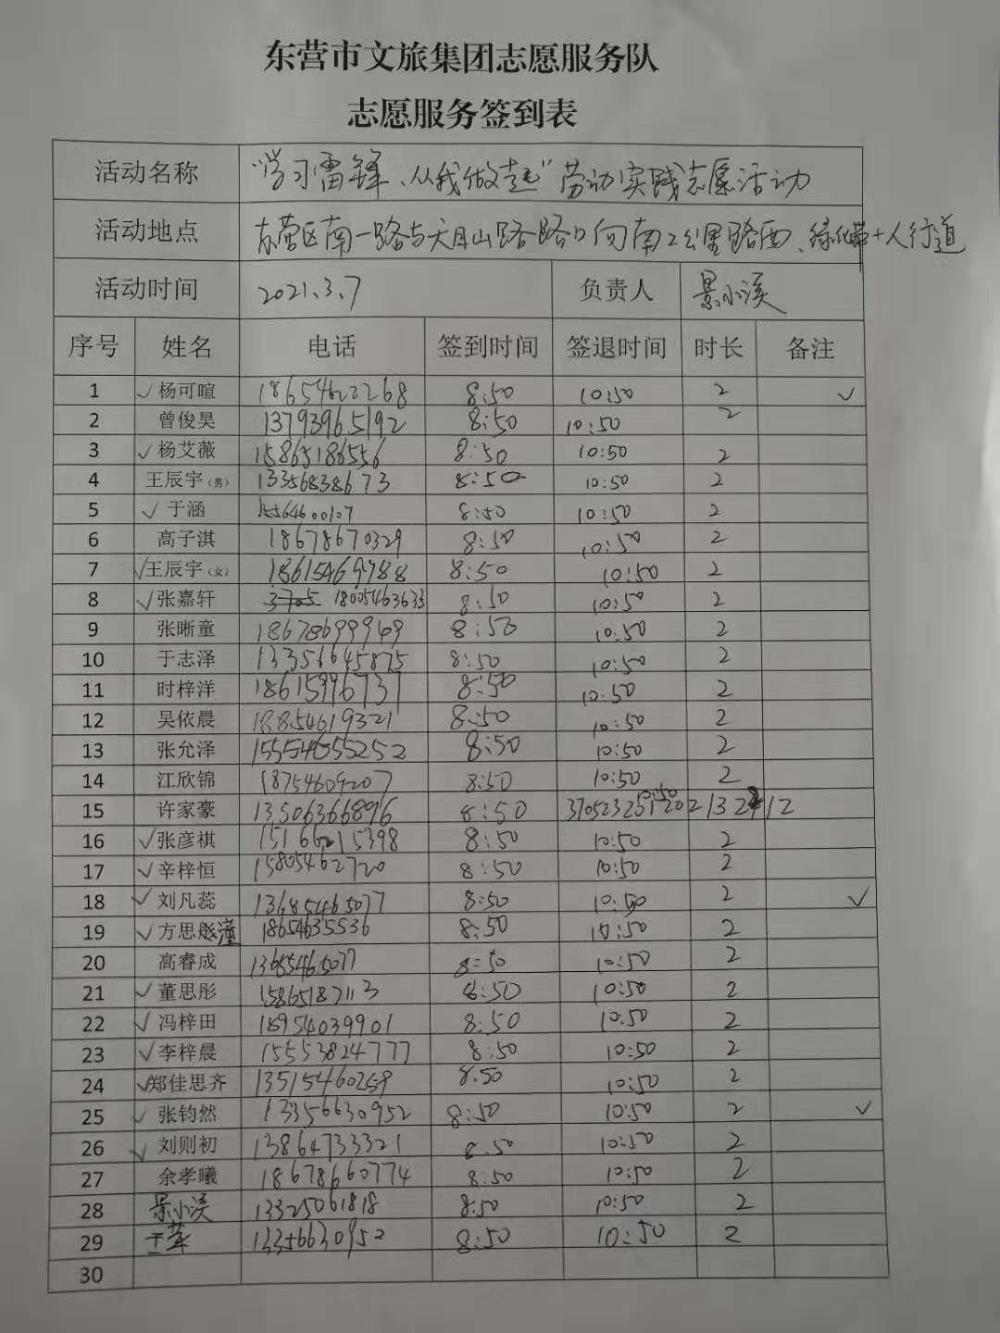 东营市文旅集团志愿服务队
志愿服务签到表
活动名称 "学习雷锋、从我做起"劳动实践志愿活动
活动地点 东营区南一路与天目山路路口向南2公里路西、绿化带+人行道
活动时间 2021.3.7 负责人 景小溪
序号 姓名 电话 签到时间 签退时间 时长 备注
1 ✓杨可暄 18654622268 8:50 10:50 2 ✓
2 曾俊昊 13793965192 8:50 10:50 2
3 ✓杨艾薇 15865186556 8:50 10:50 2
4 王辰宇(男) 13356838673 8:50 10:50 2
5 ✓于涵 15564600107 8:50 10:50 2
6 高子淇 18678670329 8:50 10:50 2
7 ✓王辰宇(女) 18615469988 8:50 10:50 2
8 ✓张嘉轩 3705 18005463633 8:50 10:50 2
9 张晰童 18678699969 8:50 10:50 2
10 于志泽 13356645875 8:50 10:50 2
11 时梓洋 18615996737 8:50 10:50 2
12 吴依晨 18854619321 8:50 10:50 2
13 张允泽 15554655252 8:50 10:50 2
14 江欣锦 18754609207 8:50 10:50 2
15 许家豪 13506366896 8:50 10:50
16 ✓张彦祺 15166215398 8:50 10:50 2
17 ✓辛梓恒 15805462720 8:50 10:50 2
18 ✓刘凡蕊 13685465077 8:50 10:50 2 ✓
19 ✓方思 潼 18654635536 8:50 10:50 2
20 高睿成 13685465077 8:50 10:50 2
21 ✓董思彤 15865187113 8:50 10:50 2
22 ✓冯梓田 18954039901 8:50 10:50 2
23 ✓李梓晨 15553824777 8:50 10:50 2
24 ✓郑佳思齐 13515460259 8:50 10:50 2
25 ✓张钧然 13356630952 8:50 10:50 2 ✓
26 ✓刘则初 13864733321 8:50 10:50 2
27 余孝曦 18678660774 8:50 10:50 2
28 景小溪 13325061818 8:50 10:50 2
29 王苹 13356630952 8:50 10:50 2
30